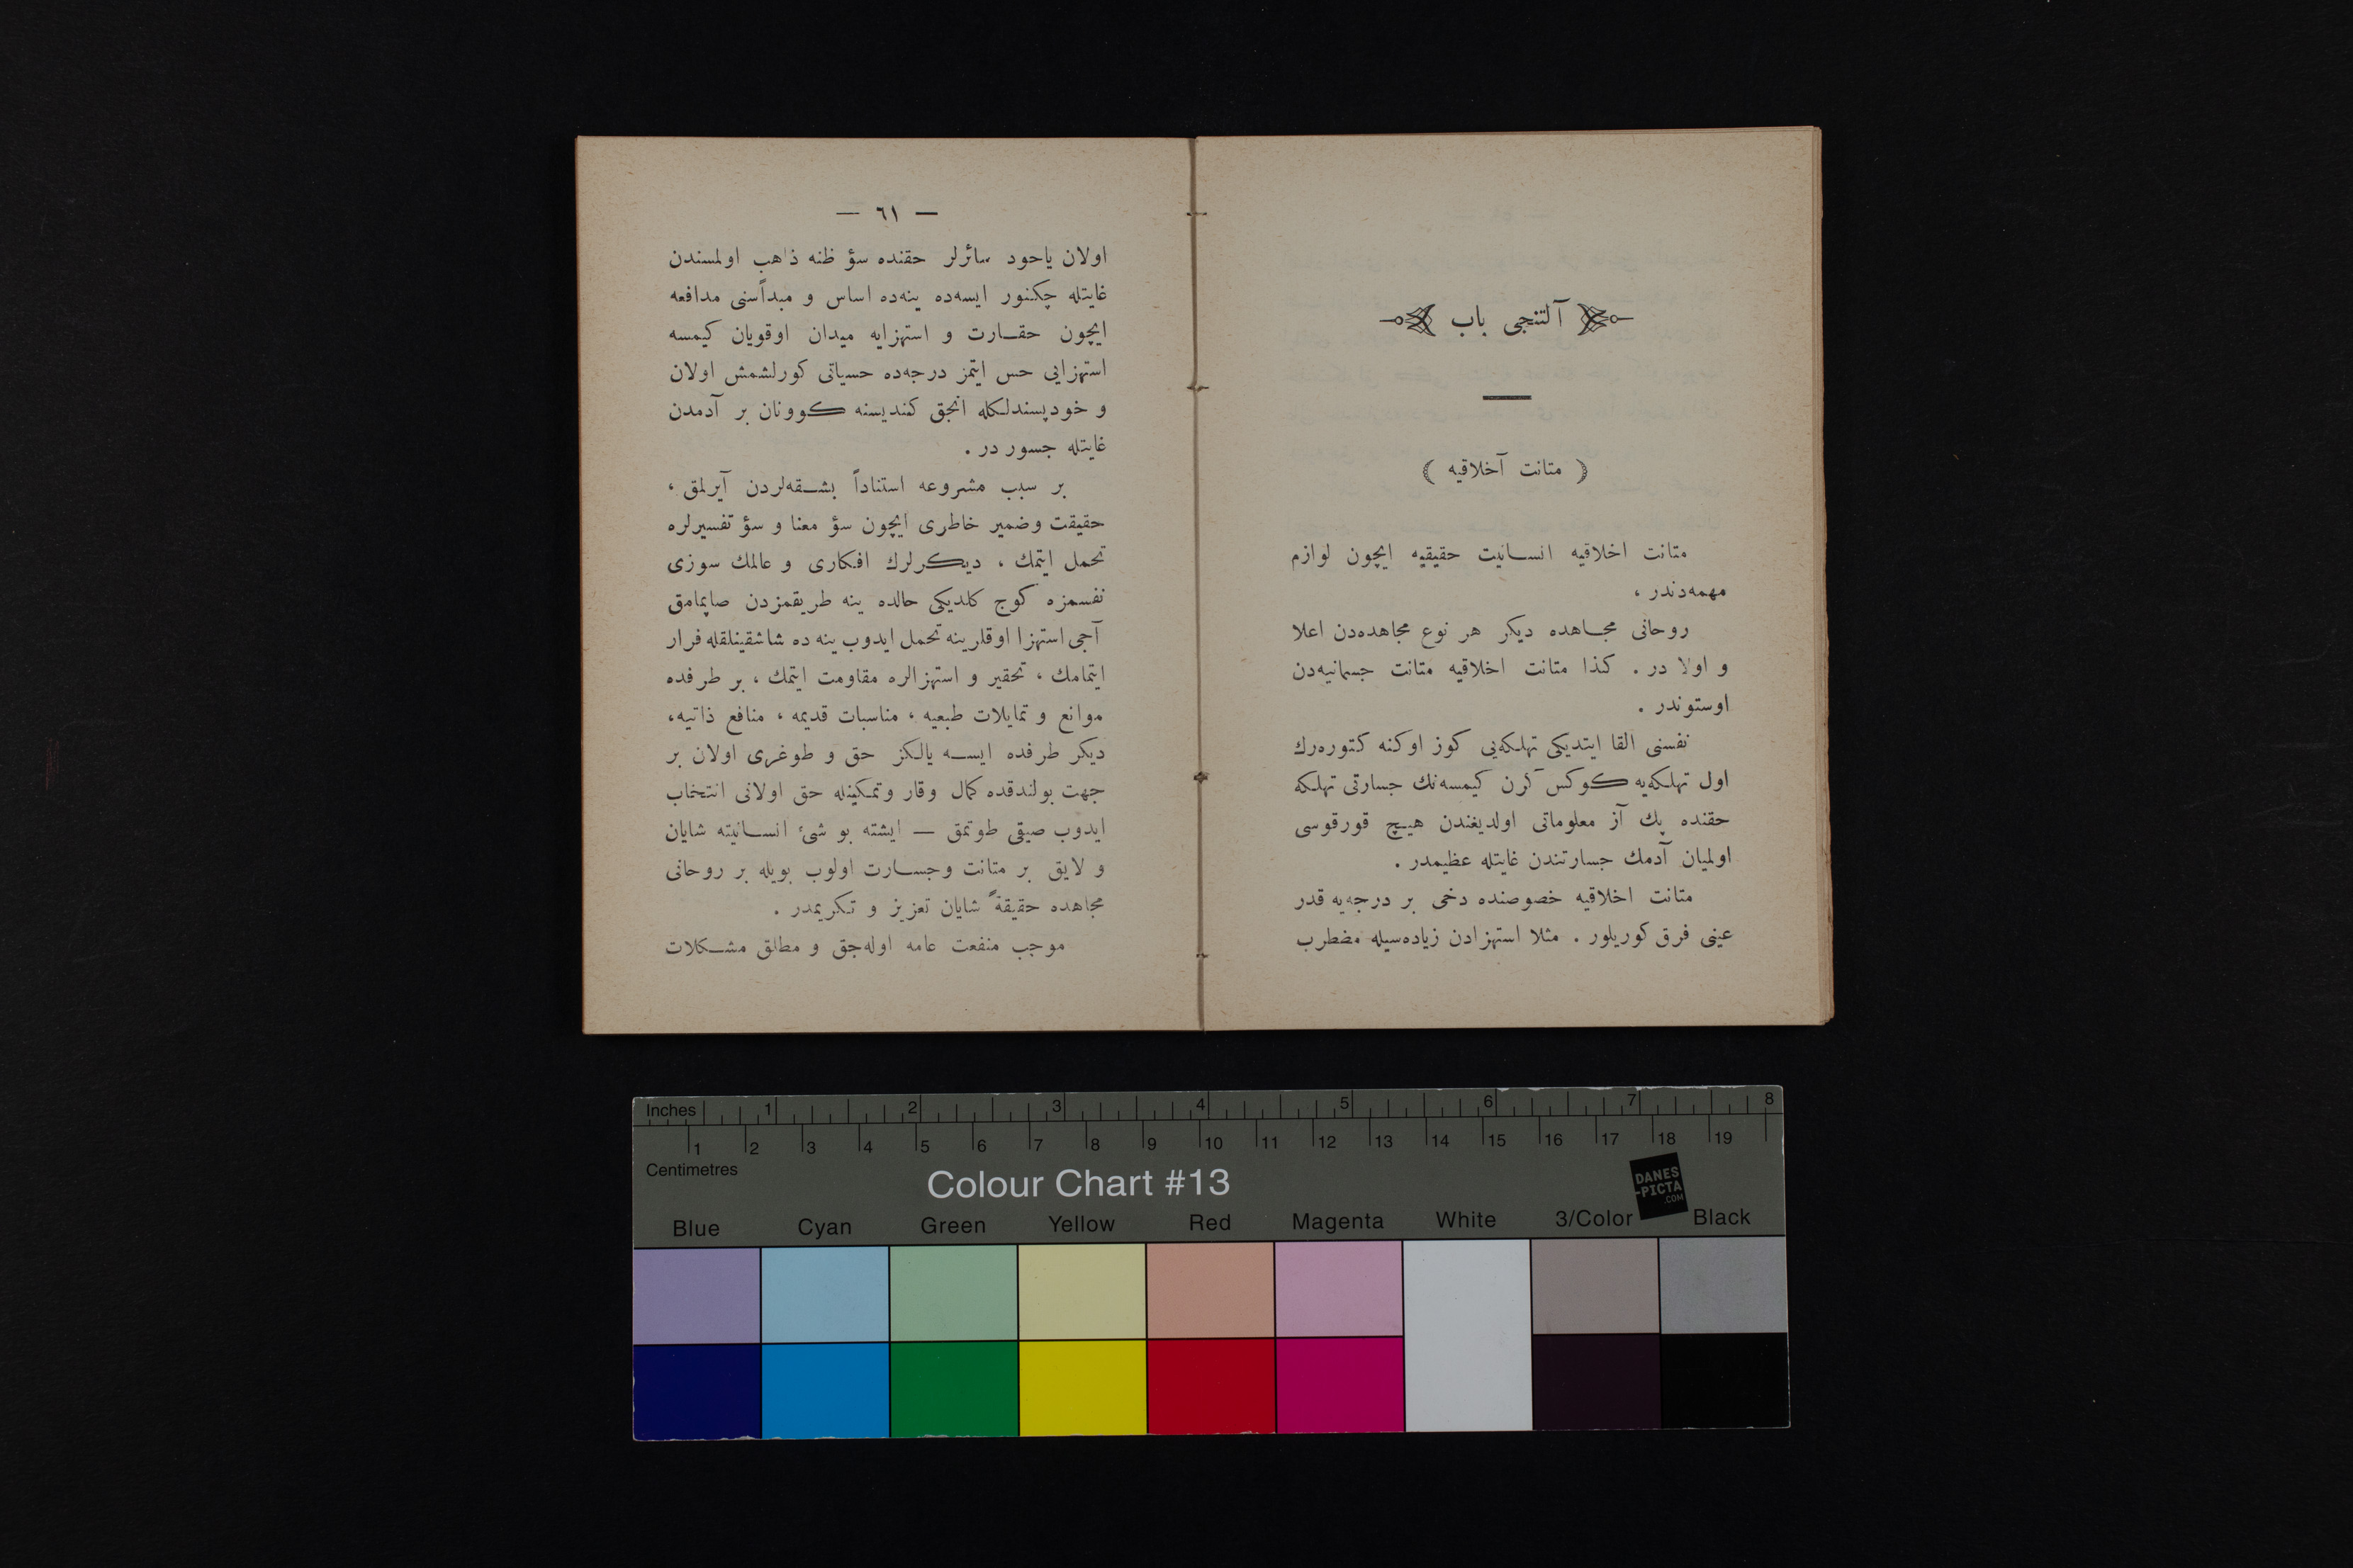 آلتنجی باب
( متانت آخلاقیه )
متانت اخلاقیه انسانیت حقیقیه ایچون لوازم
مهمه‌دندر ،
روحانی مجاهده دیکر هر نوع مجاهده‌دن اعلا
و اولا در . کذا متانت اخلاقیه متانت جسمانیه‌دن
اوستوندر .
نفسنی القا ایتدیکی تهلکه‌یی کوز اوکنه کتوره‌رك
اول تهلکه‌یه کوکس کرن کیمسه‌نك جسارتی تهلکه
حقنده پك آز معلوماتی اولدیغندن هیچ قورقوسی
اولمیان آدمك جسارتندن غایتله عظیمدر .
متانت اخلاقیه خصوصنده دخی بر درجه‌یه قدر
عینی فرق کوریلور . مثلا استهزادن زیاده‌سیله مضطرب
— ٦١ —
اولان یاحود سائرلر حقنده سؤ ظنه ذاهب اولمسندن
غایتله چکنور ایسه‌ده ینه‌ده اساس و مبدأسنی مدافعه
ایچون حقارت و استهزایه میدان اوقویان کیمسه
استهزایی حس ایتمز درجه‌ده حسیاتی کورلشمش اولان
و خودپسندلکله انجق کندیسنه کوونان بر آدمدن
غایتله جسور در .
بر سبب مشروعه استناداً بشقه‌لردن آیرلمق ،
حقیقت وضمیر خاطری ایچون سؤ معنا و سؤ تفسیرلره
تحمل ایتمك ، دیکرلرك افکاری و عالمك سوزی
نفسمزه کوج کلدیکی حالده ینه طریقمزدن صاپمامق
آجی استهزا اوقلرینه تحمل ایدوب ینه ده شاشقینلقله فرار
ایتمامك ، تحقیر و استهزالره مقاومت ایتمك ، بر طرفده
موانع و تمایلات طبعیه ، مناسبات قدیمه ، منافع ذاتیه،
دیکر طرفده ایسه یالکز حق و طوغری اولان بر
جهت بولندقده کمال وقار وتمکینله حق اولانی انتخاب
ایدوب صیقی طوتمق — ایشته بو شئ انسانیته شایان
و لایق بر متانت وجسارت اولوب بویله بر روحانی
مجاهده حقیقةً شایان تعزیز و تکریمدر .
موجب منفعت عامه اوله‌جق و مطلق مشکلات
Inches 1 2 3 4 5 6 7 8
1 2 3 4 5 6 7 8 9 10 11 12 13 14 15 16 17 18 19
Centimetres
Colour Chart #13
DANES
-PICTA
.COM
Blue Cyan Green Yellow Red Magenta White 3/Color Black